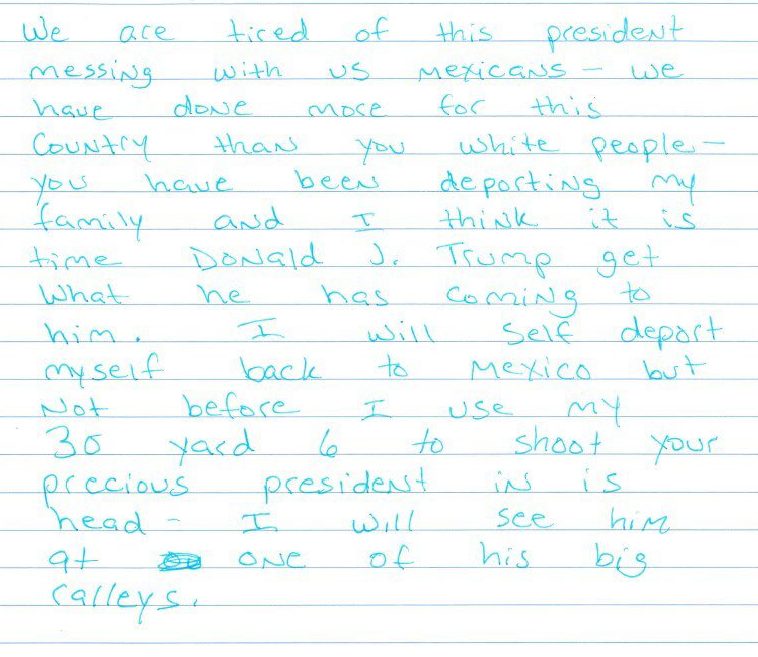 We are tired of this president
messing with us mexicans – we
have done more for this
Country than you white people –
you have been deporting my
family and I think it is
time Donald J. Trump get
What he has coming to
him. I will self deport
myself back to Mexico but
Not before I use my
30 yard 6 to shoot your
precious president in is
head – I will see him
at one of his big
ralleys.